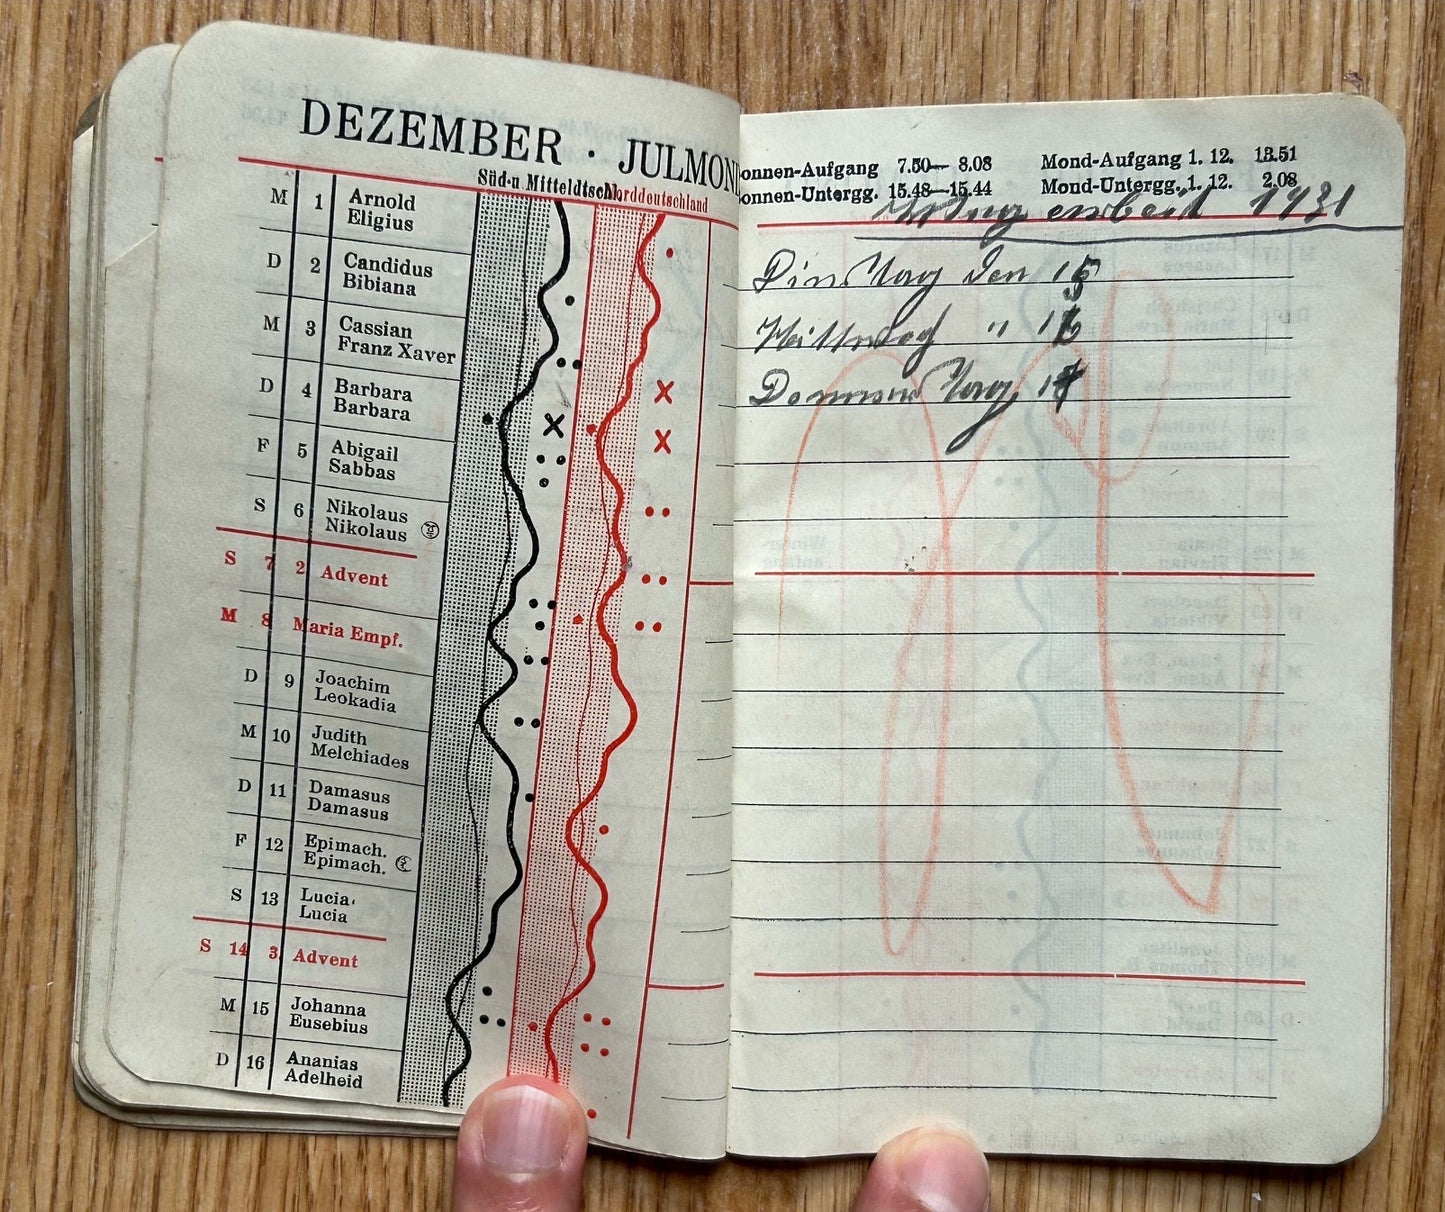 DEZEMBER · JULMOND
Süd-u Mitteldtschl. Norddeutschland
M 1 Arnold
Eligius
D 2 Candidus
Bibiana
M 3 Cassian
Franz Xaver
D 4 Barbara
Barbara
F 5 Abigail
Sabbas
S 6 Nikolaus
Nikolaus
S 7 2 Advent
M 8 Maria Empf.
D 9 Joachim
Leokadia
M 10 Judith
Melchiades
D 11 Damasus
Damasus
F 12 Epimach.
Epimach.
S 13 Lucia
Lucia
S 14 3 Advent
M 15 Johanna
Eusebius
D 16 Ananias
Adelheid
onnen-Aufgang 7.50— 8.08 Mond-Aufgang 1. 12. 13.51
onnen-Untergg. 15.48—15.44 Mond-Untergg. 1. 12. 2.08
1931
Dinstag den 15
Mittwoch " 16
Donnerstag 17